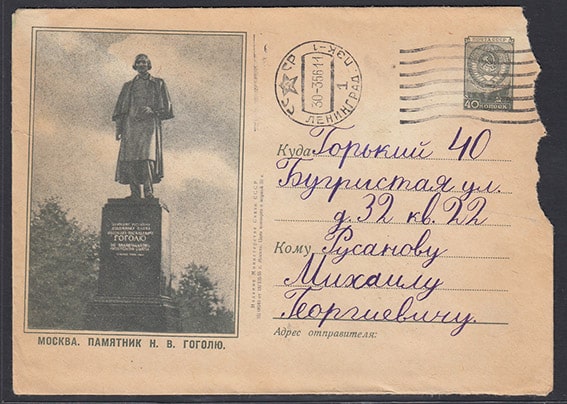 ПОЧТА СССР
40 КОПЕЕК
СССР
ЛЕНИНГРАД ПЖК-1
1
Куда Горький 40
Бугристая ул.
д. 32 кв. 22
Кому Русанову
Михаилу
Георгиевичу.
Адрес отправителя:
ГОГОЛЮ
МОСКВА. ПАМЯТНИК Н. В. ГОГОЛЮ.